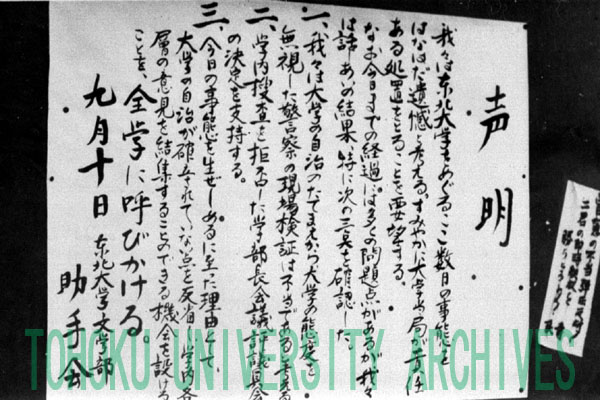 声明
我々は東北大学をめぐるここ数日の事態を
はなはだ遺憾と考える。すみやかに大学当局が責任
ある処置をとることを要望する。
なお今日までの経過には多くの問題点があるが我々
は話しあいの結果、特に次の三点を確認した。
一、我々は大学の自治のたてまえから大学の態度を
無視した警察の現場検証は不当であると考える
二、学内捜査を拒否した学部長会議評議員会
の決定を支持する。
三、今日の事態を生ぜしめるに至った理由として、
大学の自治が確立されていない点を反省し学内各
層の意見を結集することのできる機会を設ける
ことを、全学に呼びかける。
九月十日 東北大学文学部
助手会
TOHOKU UNIVERSITY ARCHIVES